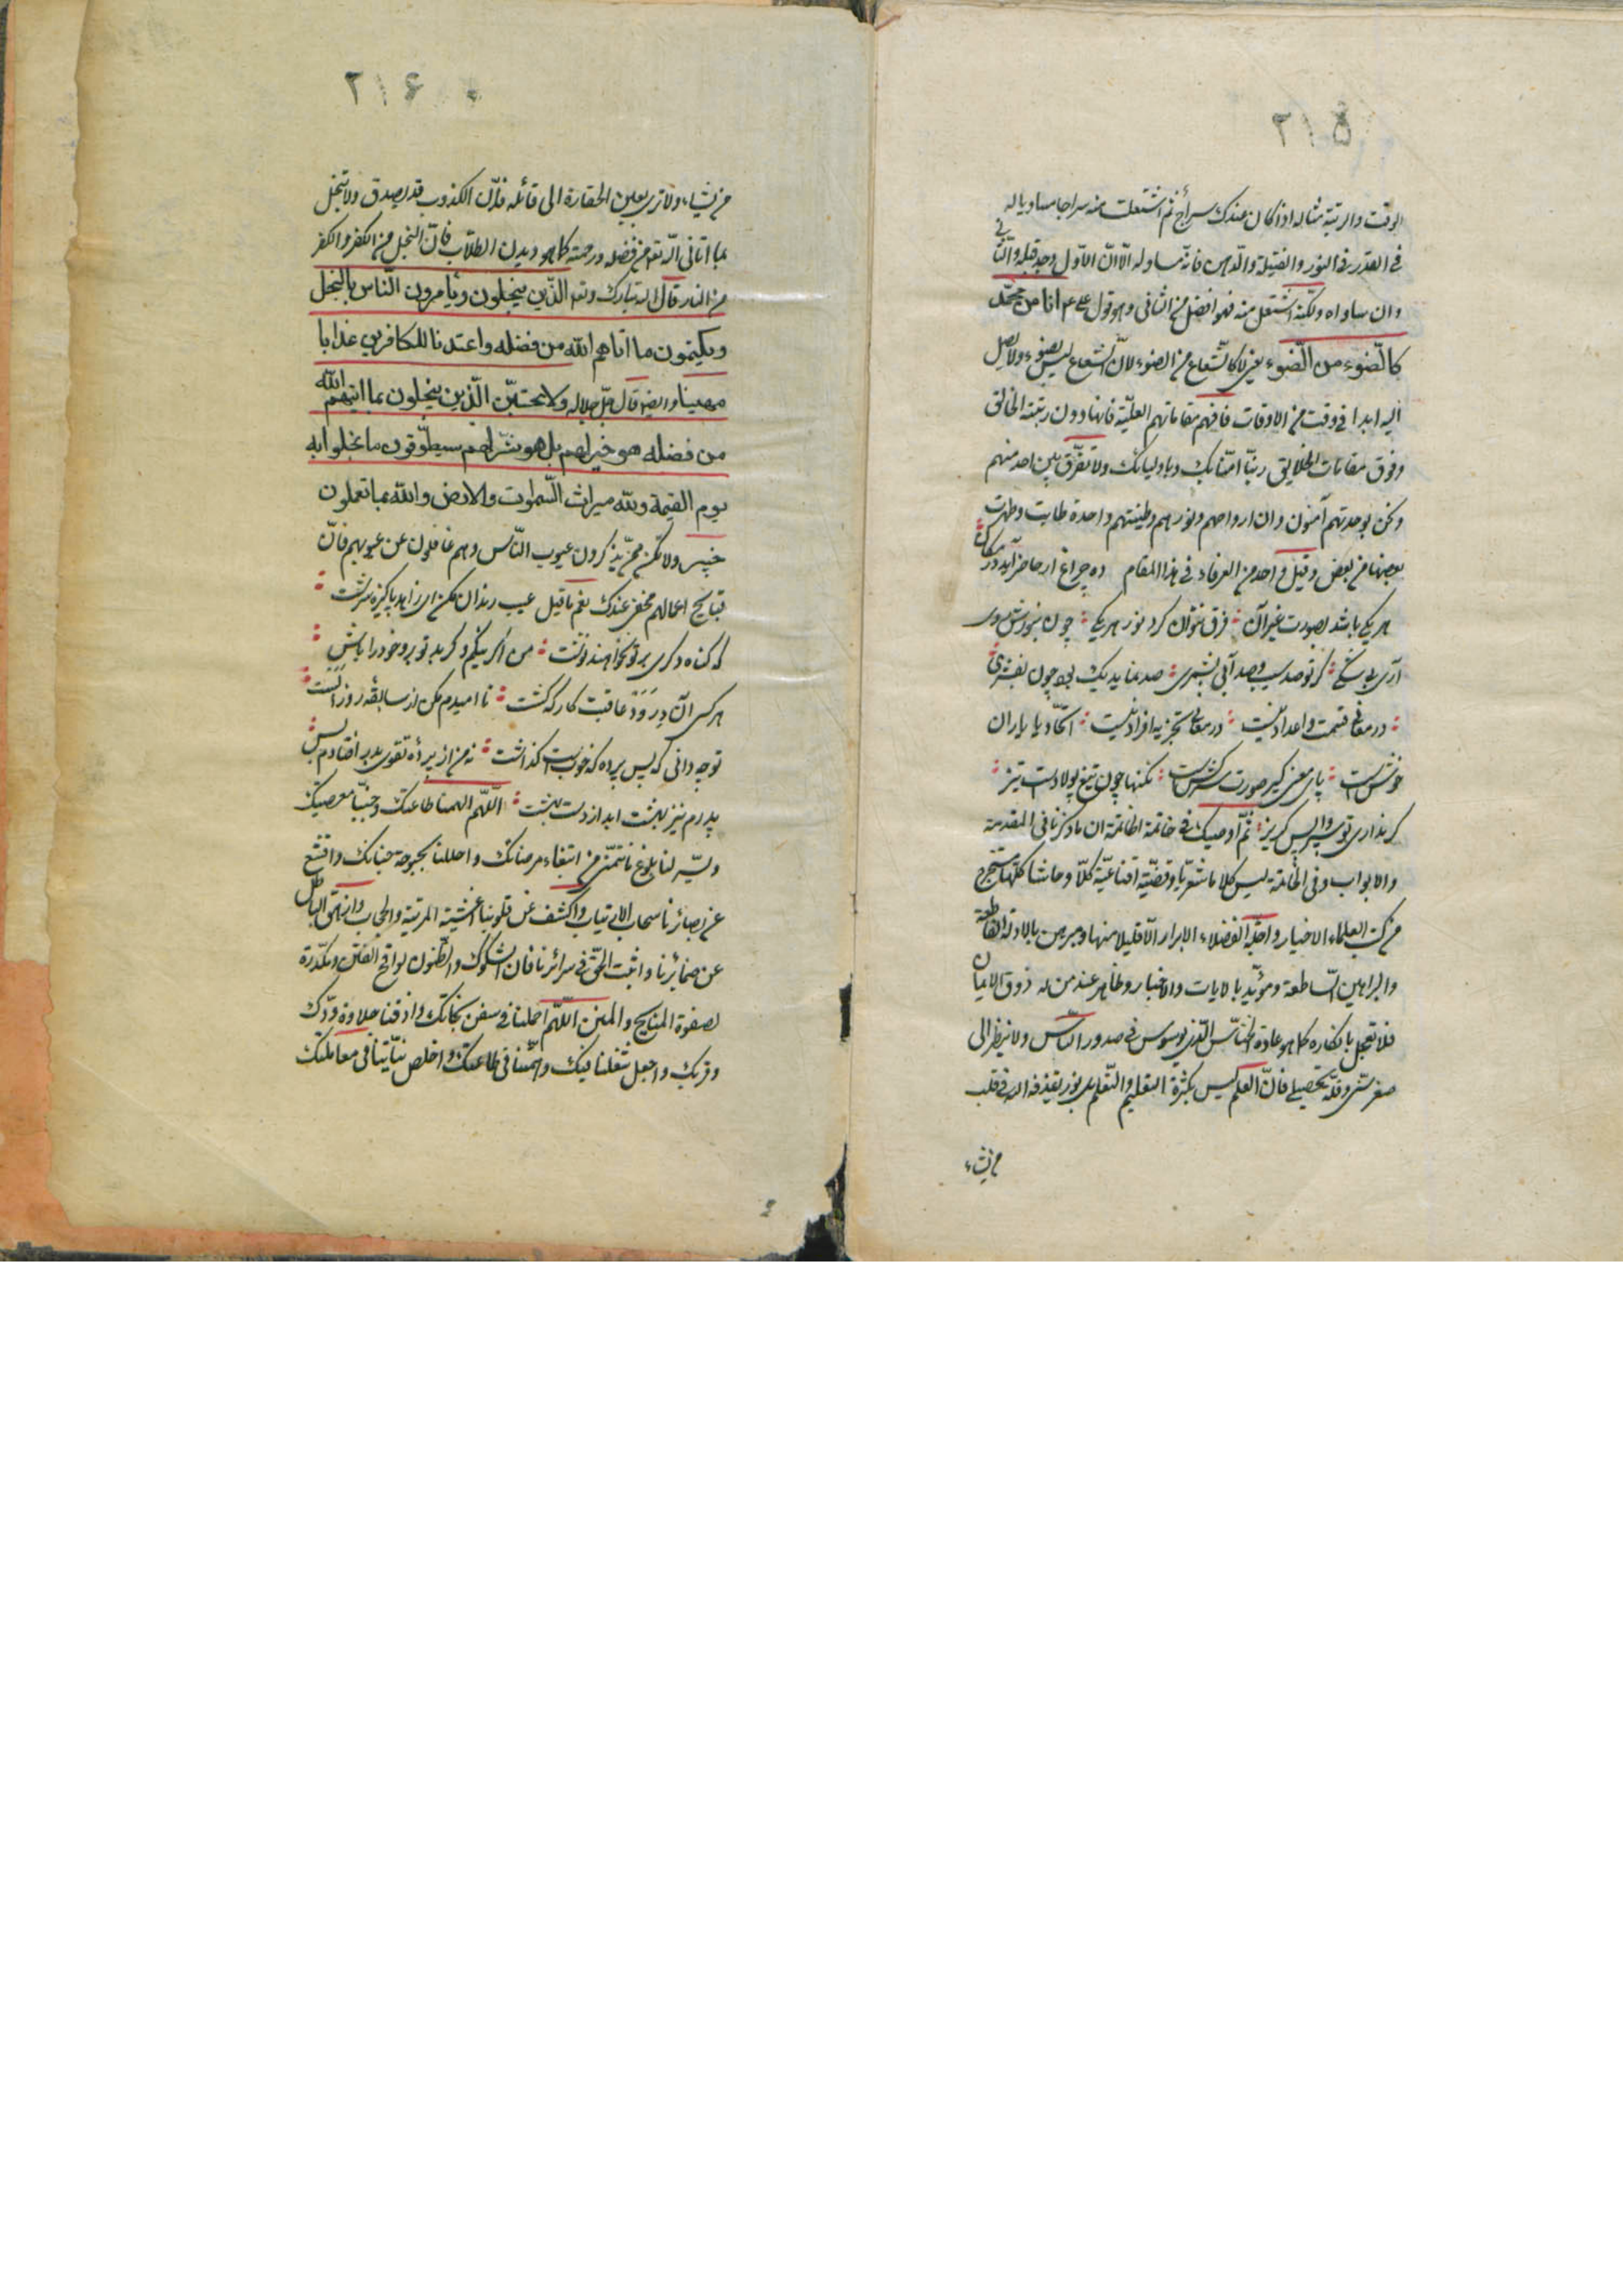 ۲۱۵
الوقت والرتبة مثاله اذا كان عندك سراج ثم اشتعلت منه سراجا مساويا له
فى القدر فى النور والفتيلة والدهن فانه مساو له الّا انّ الاوّل وجد قبله والثانى
وان ساواه ولكنه اشتعل منه فهو افضل من الثانى وهو قول على ع م انا من محمّد
كالضّوء من الضّوء يعنى لا كالشعاع من الضوء لانّ الشعاع ليس بضوء ولا يصل
اليه ابدا فى وقت من الاوقات فافهم مقاماتهم العليّة فانها دون رتبته الخالق
وفوق مقامات الخلايق ربنا امنّا بك وباوليائك ولا نفرّق بين احد منهم
ونحن بوحدتهم آمنون وان ارواحهم ونورهم وطينتهم واحدة طابت وطهرت
بعضها من بعض وقيل واحد من العرفاء فى هذا المقام ده چراغ ار حاضر آيد در مكان
هر يكى باشد بصورت غير آن فرق نتوان كرد نور هر يكى چون بنورش روى
آرى بى شكى گر تو صد سيب و صد آبى بشمرى صد نمايد يك بود چون بفشرى
در معانى قسمت واعداد نيست در معانى تجزيه افراد نيست اتحاد يار با ياران
خوش است پاى معنى گير صورت سركش است نكتها چون تيغ پولادست تيز
گر ندارى تو سپر واپس گريز ثم اوصيك فى خاتمة الخاتمة ان ما ذكرنا فى المقدمة
والابواب وفى الخاتمة ليس كلاما شعريّا وقضيّة اقناعيّة كلّا وحاشا كلها مستخرج
من كتب العلماء الاخيار واجلّه الفضلاء الابرار الّا قليلا منها ومبرهن بالادلة القاطعة
والبراهين الساطعة ومؤيّد بالايات والاخبار وظاهر عند من له ذوق الايمان
فلا تعجل بانكاره كما هو عادة الخنّاس الّذى يوسوس فى صدور النّاس ولا تنظر الى
صغر سنّى وقلّة تحصيلى فانّ العلم ليس بكثرة التعليم والتّعلم بل نور يقذفه اللّه فى قلب
من يشاء
۲۱۶
من يشاء ولا ترى بعين الحقارة الى قائله فانّ الكذوب قد يصدق ولا تبخل
بما اتانى اللّه تع من فضله ورحمته كما هو ديدن الطلّاب فانّ البخل من الكفر والكفر
من النار قال اللّه تبارك وتع الّذين يبخلون ويأمرون النّاس بالبخل
ويكتمون ما اتاهم اللّه من فضله واعتدنا للكافرين عذابا
مهينا وايضا قال جلّ جلاله ولا يحسبنّ الّذين يبخلون بما اتيهم اللّه
من فضله هو خير لهم بل هو شرّ لهم سيطوّقون ما بخلوا به
يوم القيمة وللّه ميراث السّموات والارض واللّه بما تعملون
خبير ولا تكن ممّن يذكرون عيوب النّاس وهم غافلون عن عيوبهم فانّ
قبايح اعمالهم مخفى عندك نعم ما قيل عيب رندان مكن اى زاهد پاكيزه سرشت
كه گناه دگرى بر تو نخواهند نوشت من اگر نيكم و گر بد تو برو خود را باش
هر كسى آن دِرَوَد عاقبت كار كه كشت نا اميدم مكن از سابقهٔ روز الست
تو چه دانى كه پس پرده كه خوبست كه زشت نه من از پردهٔ تقوى بدر افتادم و بس
پدرم نيز بهشت ابد از دست بهشت اللّهمّ الهمنا طاعتك وجنّبنا معصيتك
ويسّر لنا بلوغ ما نتمنّى من ابتغاء مرضاتك واحللنا بحبوحة جنانك واقشع
عن بصائرنا سحاب الارتياب واكشف عن قلوبنا اغشية المرية والحجاب وازهق الباطل
عن ضمائرنا واثبت الحقّ فى سرائرنا فان الشكوك والظّنون لواقح الفتن ومكدّرة
لصفوة المنايح والمنن اللّهم احملنا فى سفن نجاتك واذقنا حلاوة ودّك
وقربك واجعل شغلنا فيك وهمّنا فى طاعتك واخلص نيّاتنا فى معاملتك